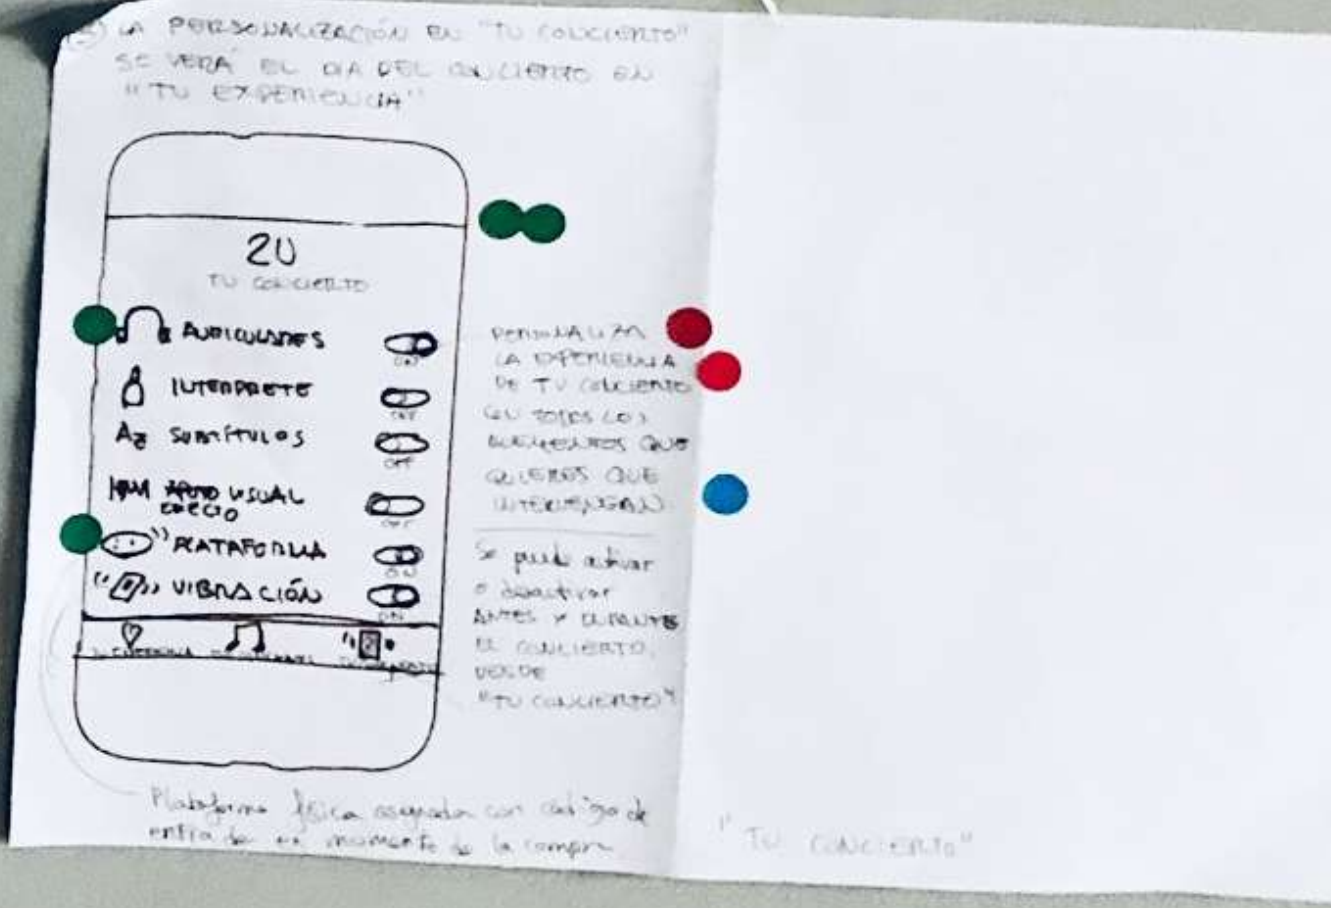 LA PERSONALIZACIÓN EN "TU CONCIERTO"
SE VERÁ EL DIA DEL CONCIERTO EN
"TU EXPERIENCIA"
2U
TU CONCIERTO
AURICULARES
ON
INTERPRETE
OFF
Az SUBTÍTULOS
OFF
VISUAL
OFF
PLATAFORMA
ON
VIBRACIÓN
ON
PERSONALIZA
LA EXPERIENCIA
DE TU CONCIERTO
CON TODOS LOS
ELEMENTOS QUE
QUIERES QUE
INTERVENGAN
Se puede activar
o desactivar
ANTES Y DURANTE
EL CONCIERTO,
DESDE
"TU CONCIERTO"
Plataforma física asignada con código de
entrada en momento de la compra
"TU CONCIERTO"